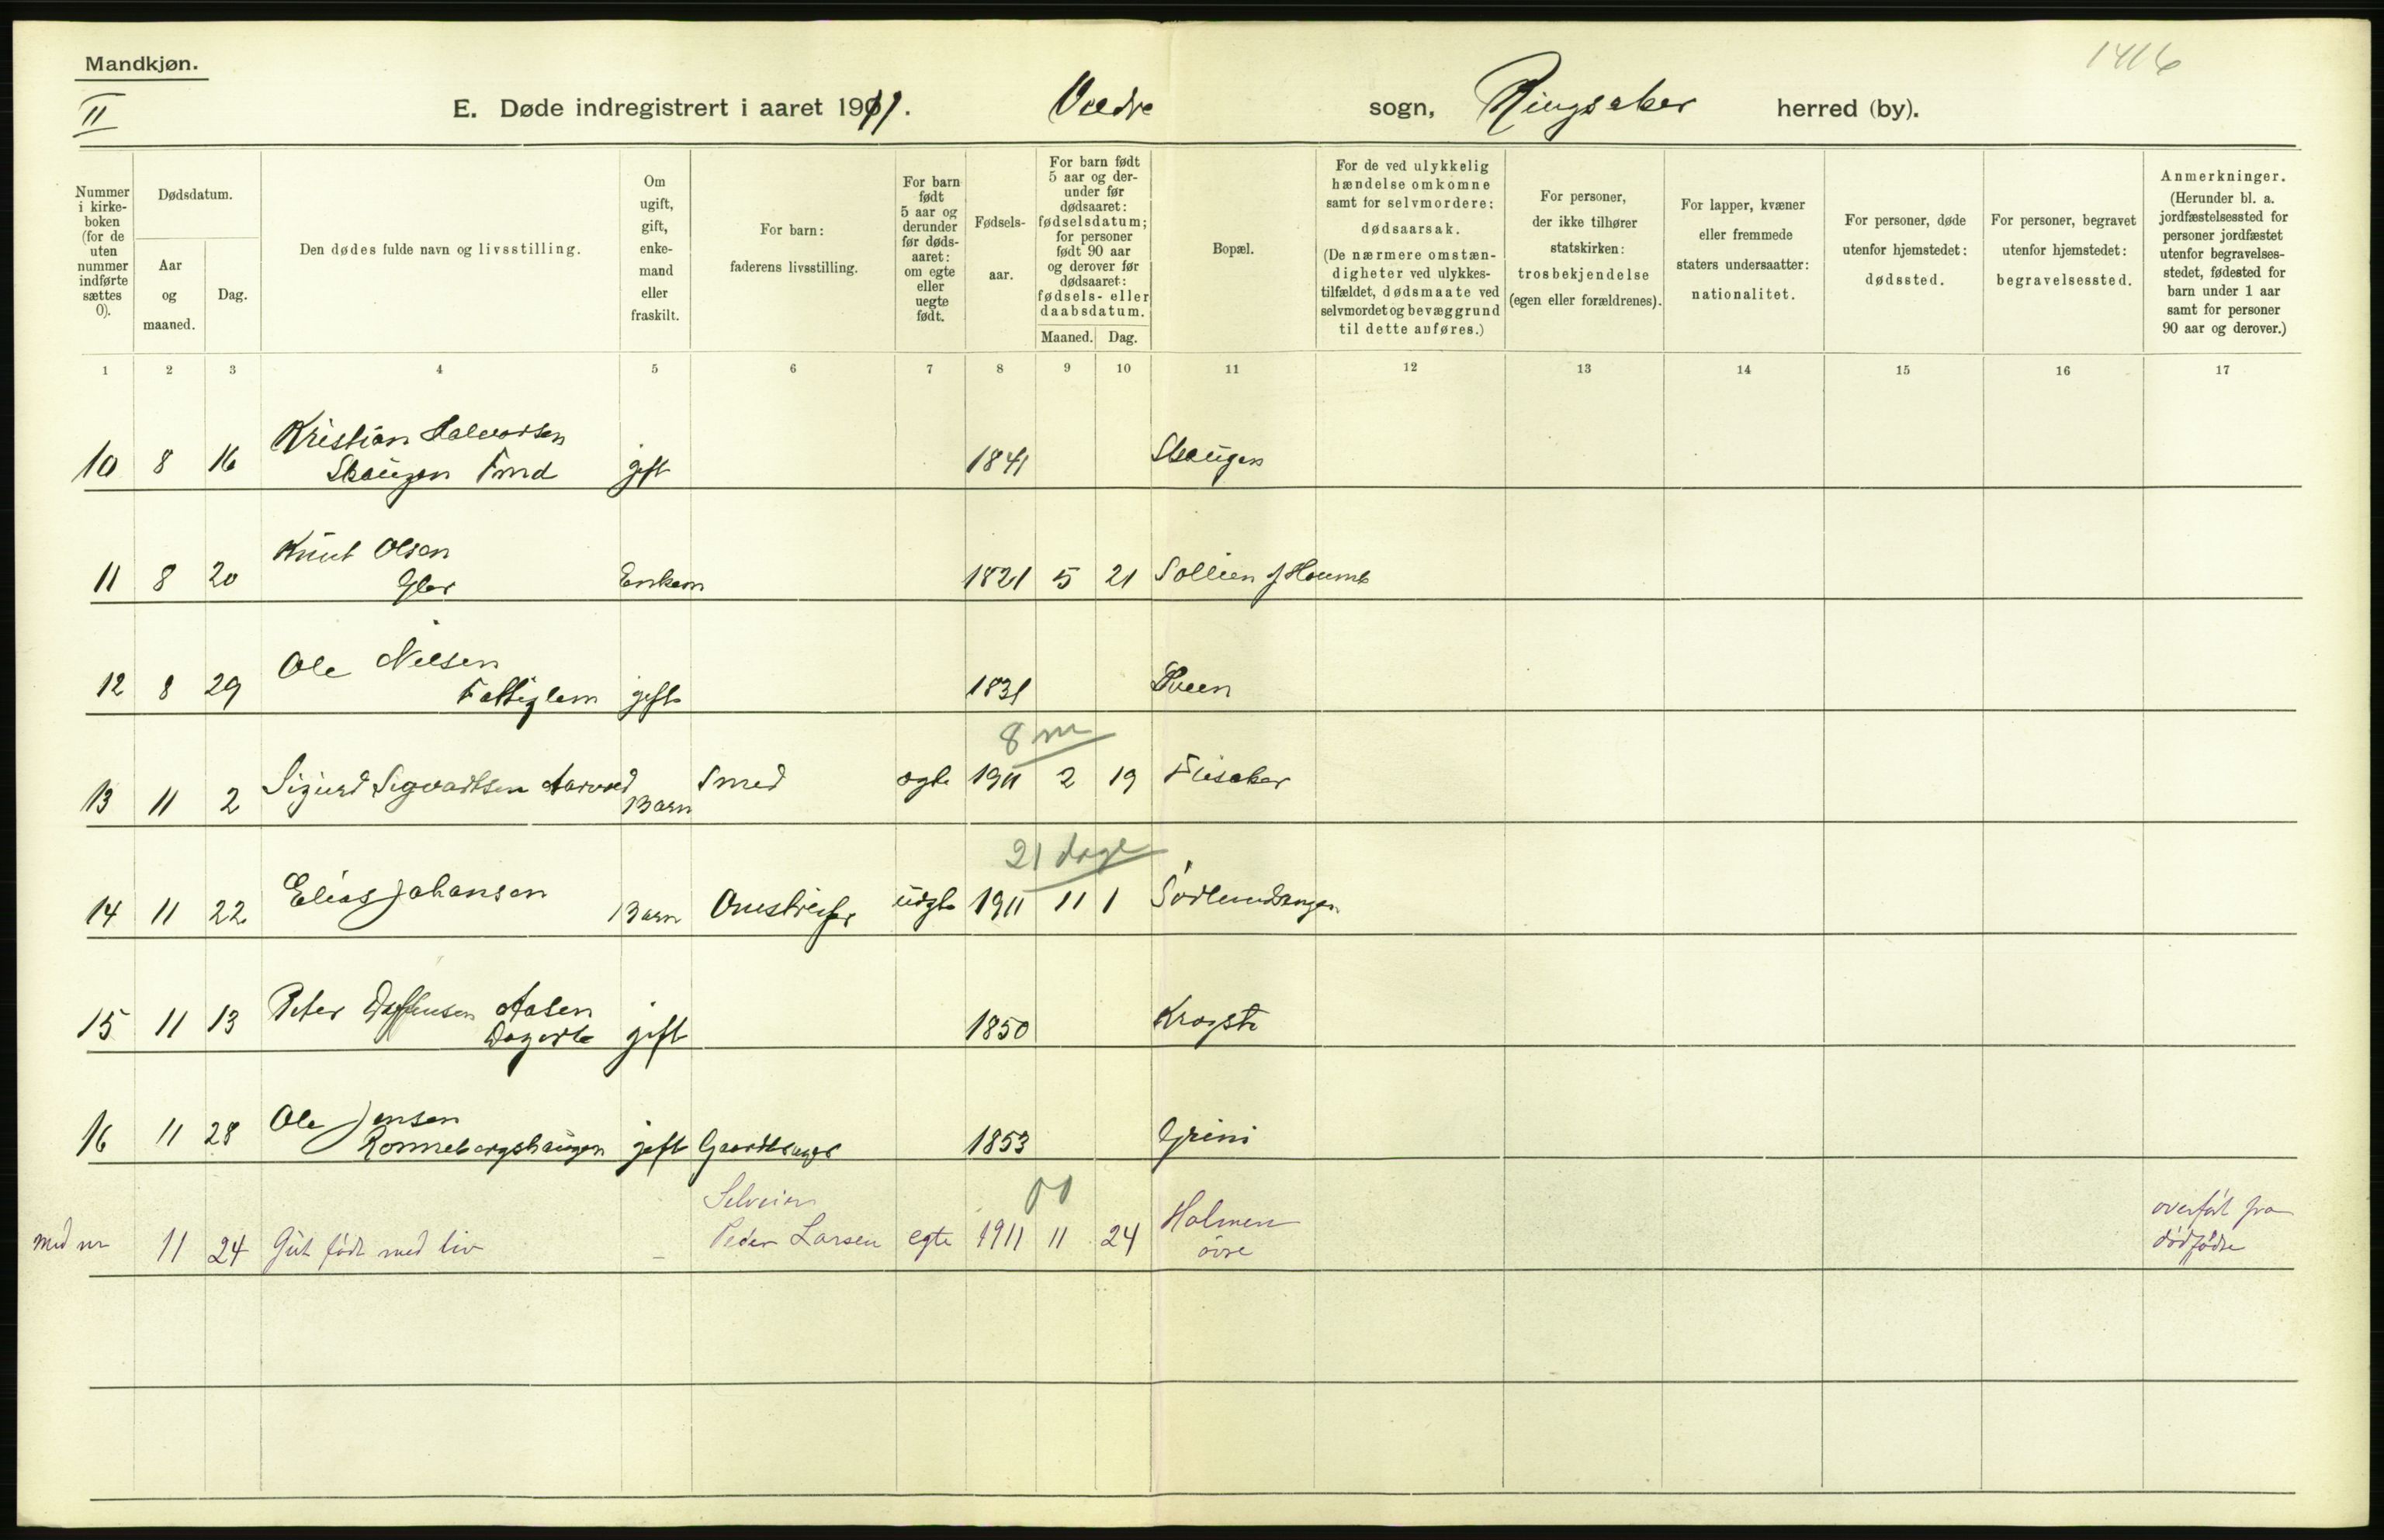 Mandkjøn.
1416
II
E. Døde indregistrert i aaret 1911. Veldre sogn, Ringsaker herred (by).
Nummer i kirke-boken (for de uten nummer indførte sættes 0).
Dødsdatum.
Aar og maaned.
Dag.
Den dødes fulde navn og livsstilling.
Om ugift, gift, enke-mand eller fraskilt.
For barn: faderens livsstilling.
For barn født 5 aar og derunder før døds-aaret: om egte eller uegte født.
Fødsels-aar.
For barn født 5 aar og der-under før dødsaaret: fødselsdatum; for personer født 90 aar og derover før dødsaaret: fødsels- eller daabsdatum.
Maaned. Dag.
Bopæl.
For de ved ulykkelig hændelse omkomne samt for selvmordere: dødsaarsak. (De nærmere omstæn-digheter ved ulykkes-tilfældet, dødsmaate ved selvmordet og bevæggrund til dette anføres.)
For personer, der ikke tilhører statskirken: trosbekjendelse (egen eller forældrenes).
For lapper, kvæner eller fremmede staters undersaatter: nationalitet.
For personer, døde utenfor hjemstedet: dødssted.
For personer, begravet utenfor hjemstedet: begravelsessted.
Anmerkninger. (Herunder bl. a. jordfæstelsessted for personer jordfæstet utenfor begravelses-stedet, fødested for barn under 1 aar samt for personer 90 aar og derover.)
1 2 3 4 5 6 7 8 9 10 11 12 13 14 15 16 17
Kristian Halvorsen
10 8 16 Skaugen gift 1841 Skaugen
Knut Olsen
11 8 20 Enkem 1821 5 21 Sollien
Ole Nilsen
12 8 29 Fattiglem gift 1831 Sveen
8 m
13 11 2 Sigurd Sigvartsen Barn Smed egte 1911 2 19
21 dage
14 11 22 Elias Johansen Barn uegte 1911 11 1
Peter Aasen
15 11 13 gift 1850
Ole Jensen
16 11 28 Ronnebergshaugen gift Gaardbruger 1853 Grini
Selveier
11 24 Gut født med liv Peder Larsen egte 1911 11 24 Holmen
øvre
overført fra
dødfødte